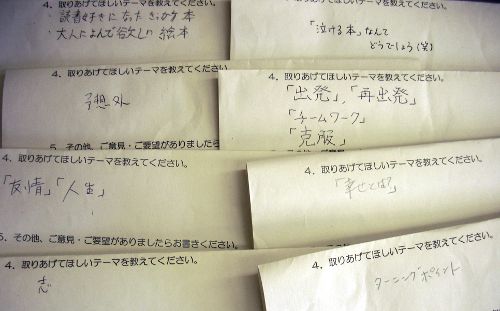 4. 取りあげてほしいテーマを教えてください。
・読書好きになったきっかけ本
・大人によんで欲しい絵本
「泣ける本」なんて
どうでしょう(笑)
4. 取りあげてほしいテーマを教えてください。
予想外
5. その他、ご意見・ご要望がありましたら
4. 取りあげてほしいテーマを教えてください。
「出発」,「再出発」
「チームワーク」
「克服」
4. 取りあげてほしいテーマを教えてください。
「友情」「人生」
5. その他、ご意見・ご要望がありましたらお書きください。
4. 取りあげてほしいテーマを教えてください。
「幸せとは?」
4. 取りあげてほしいテーマを教えてください。
志
4. 取りあげてほしいテーマを教えてください。
ターニングポイント